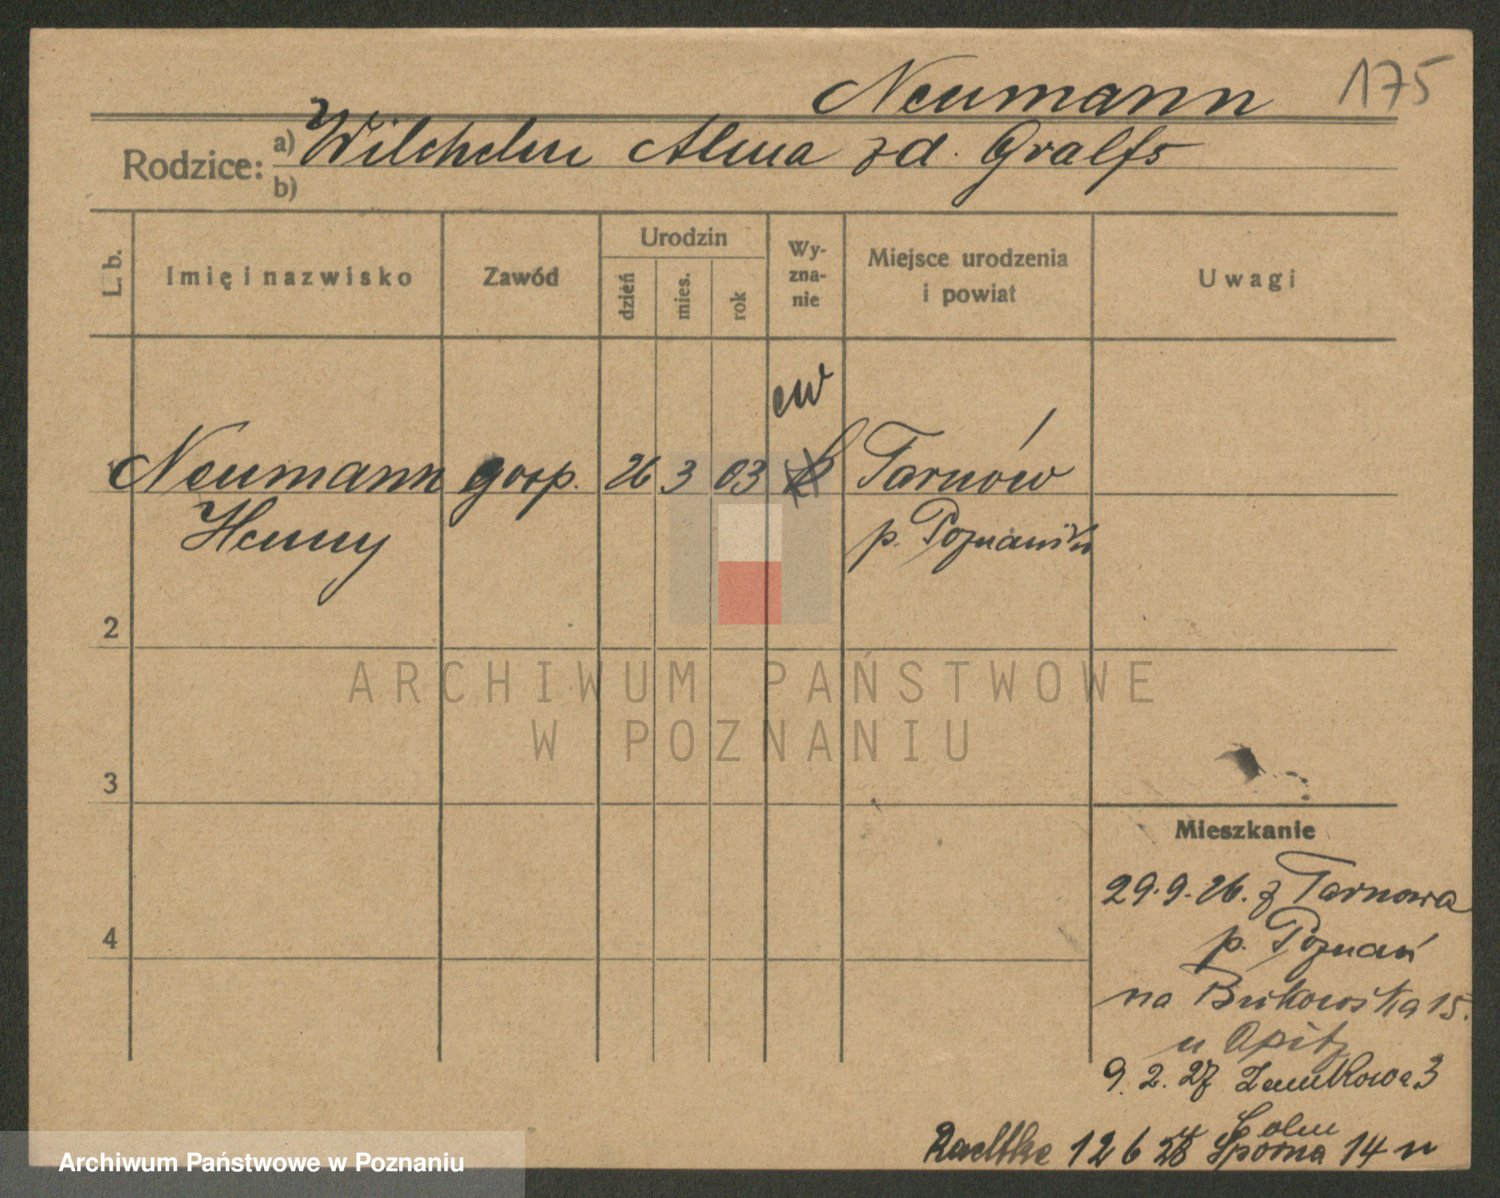 Neumann 175
Rodzice: a) Wilhelm Alma zd. Gralfs
b)
L. b.
Imię i nazwisko
Zawód
Urodzin
dzień
mies.
rok
Wy-
zna-
nie
Miejsce urodzenia
i powiat
Uwagi
ew
Neumann gosp. 26 3 03 Tarnów
Henny p. Poznański
2
3
4
Mieszkanie
29.9.26. z Tarnowa
p. Poznań
na Bukowska 15.
u Opitz
9.2.27 Zamkowa 3
12 6 28 Sporna 14 u
ARCHIWUM PAŃSTWOWE
W POZNANIU
Archiwum Państwowe w Poznaniu